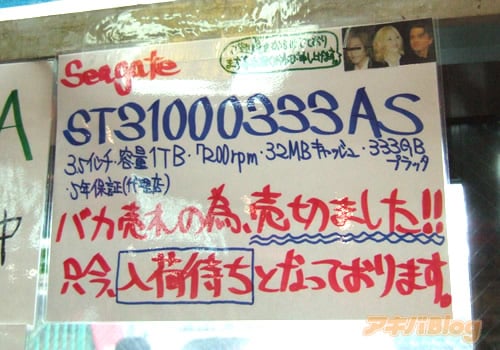 Seagate
ST31000333AS
3.5インチ・容量1TB・7200rpm・32MBキャッシュ・333GB
プラッタ
・5年保証(代理店)
バカ売れの為、売切ました!!
只今、入荷待ちとなっております。
アキバBlog
A
中